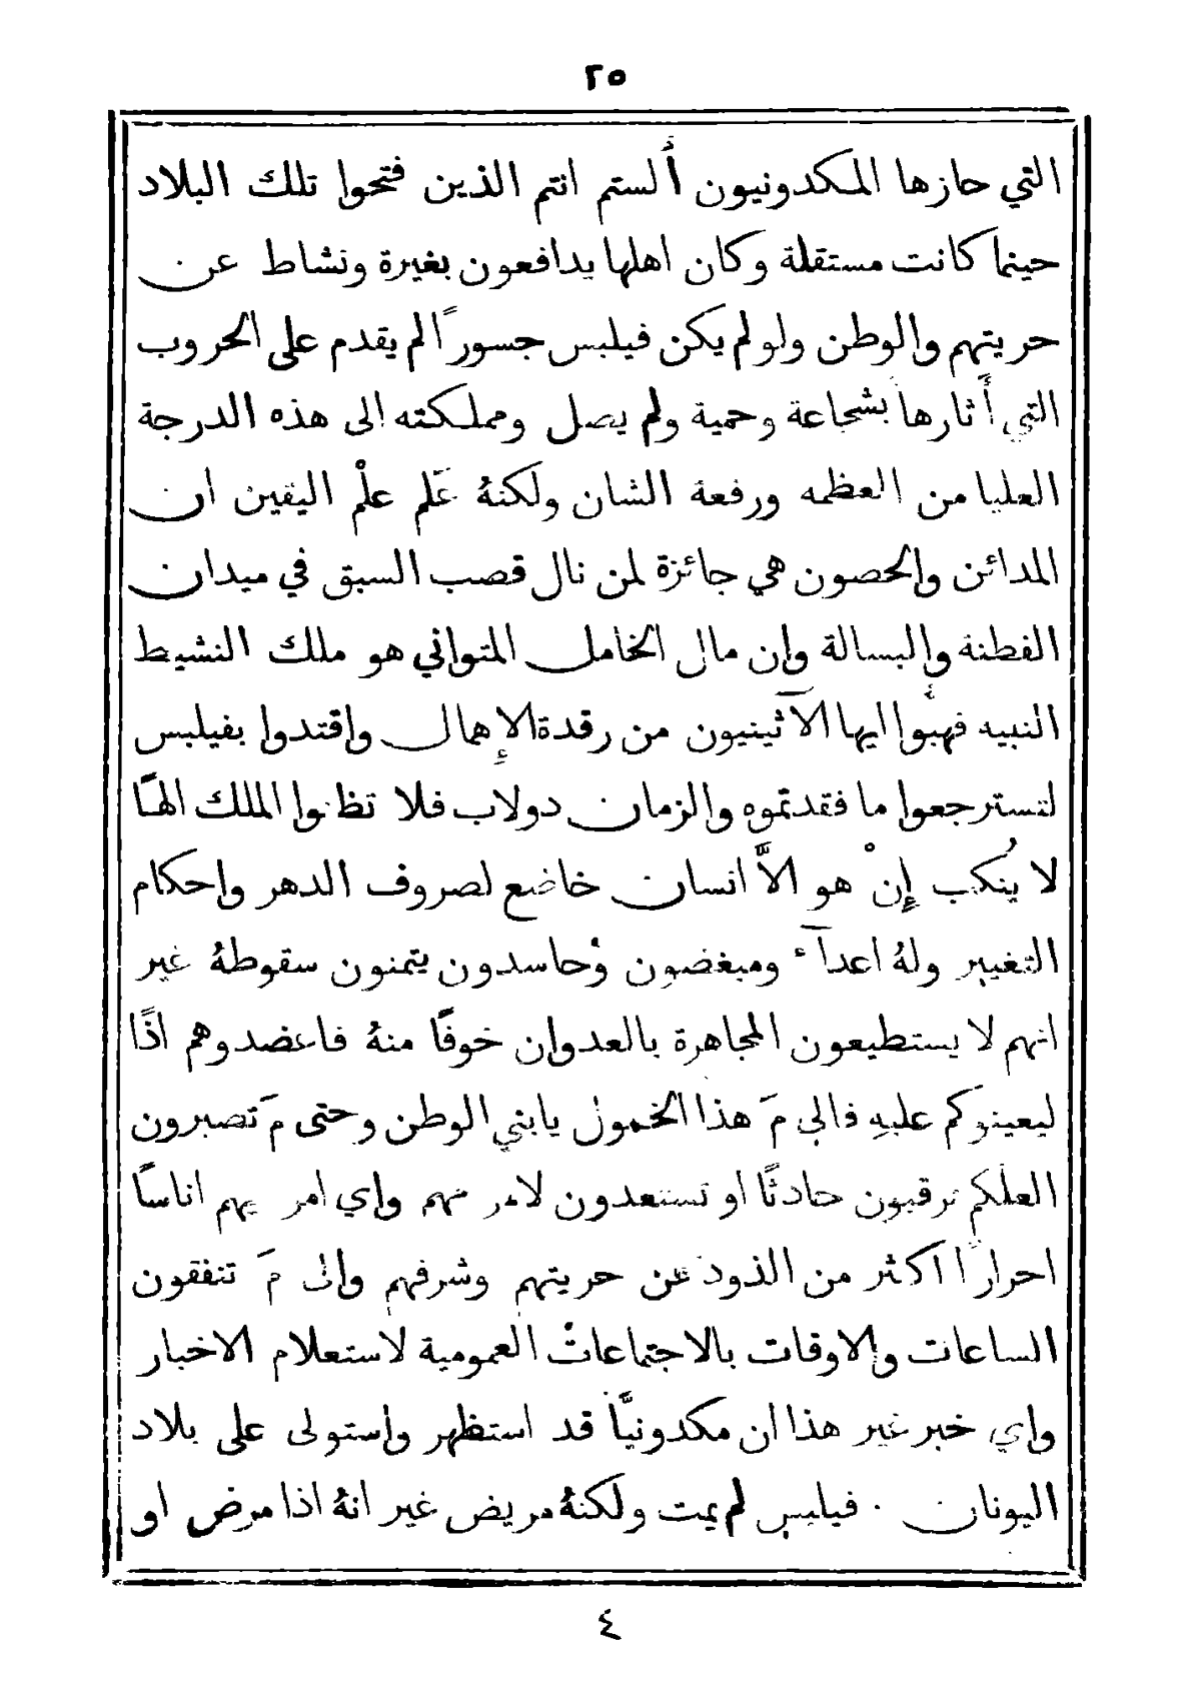 ٢٥
التي حازها المكدونيون أَلستم انتم الذين فتحوا تلك البلاد
حينما كانت مستقلة وكان اهلها يدافعون بغيرة ونشاط عن
حريتهم والوطن ولو لم يكن فيلبس جسوراً لم يقدم على الحروب
التي أَثارها بشجاعة وحمية ولم يصل ومملكته الى هذه الدرجة
العليا من العظمه ورفعة الشان ولكنهُ عَلم علْم اليقين ان
المدائن والحصون هي جائزة لمن نال قصب السبق في ميدان
الفطنة والبسالة وان مال الخامل المتواني هو ملك النشيط
النبيه فهبُّوا ايها الآثينيون من رقدة الإهمال واقتدوا بفيلبس
لتسترجعوا ما فقدتموه والزمان دولاب فلا تظنوا الملك الهًا
لا يُنكب إِنْ هو الاَّ انسان خاضع لصروف الدهر واحكام
التغيير ولهُ اعدآء ومبغضون وُحاسدون يتمنون سقوطهُ غير
انهم لا يستطيعون المجاهرة بالعدوان خوفًا منهُ فاعضدوهم اذًا
ليعينوكم عليهِ فالى مَ هذا الخمول يا بني الوطن وحتى مَ تصبرون
العلكم ترقبون حادثًا او تستعدون لامر مهم واي امر يهم اناسًا
احرارًا اكثر من الذود عن حريتهم وشرفهم والى مَ تنفقون
الساعات والاوقات بالاجتماعات العمومية لاستعلام الاخبار
واي خبر غير هذا ان مكدونيًّا قد استظهر واستولى على بلاد
اليونان . فيلبس لم يمت ولكنهُ مريض غير انهُ اذا مرض او
٤